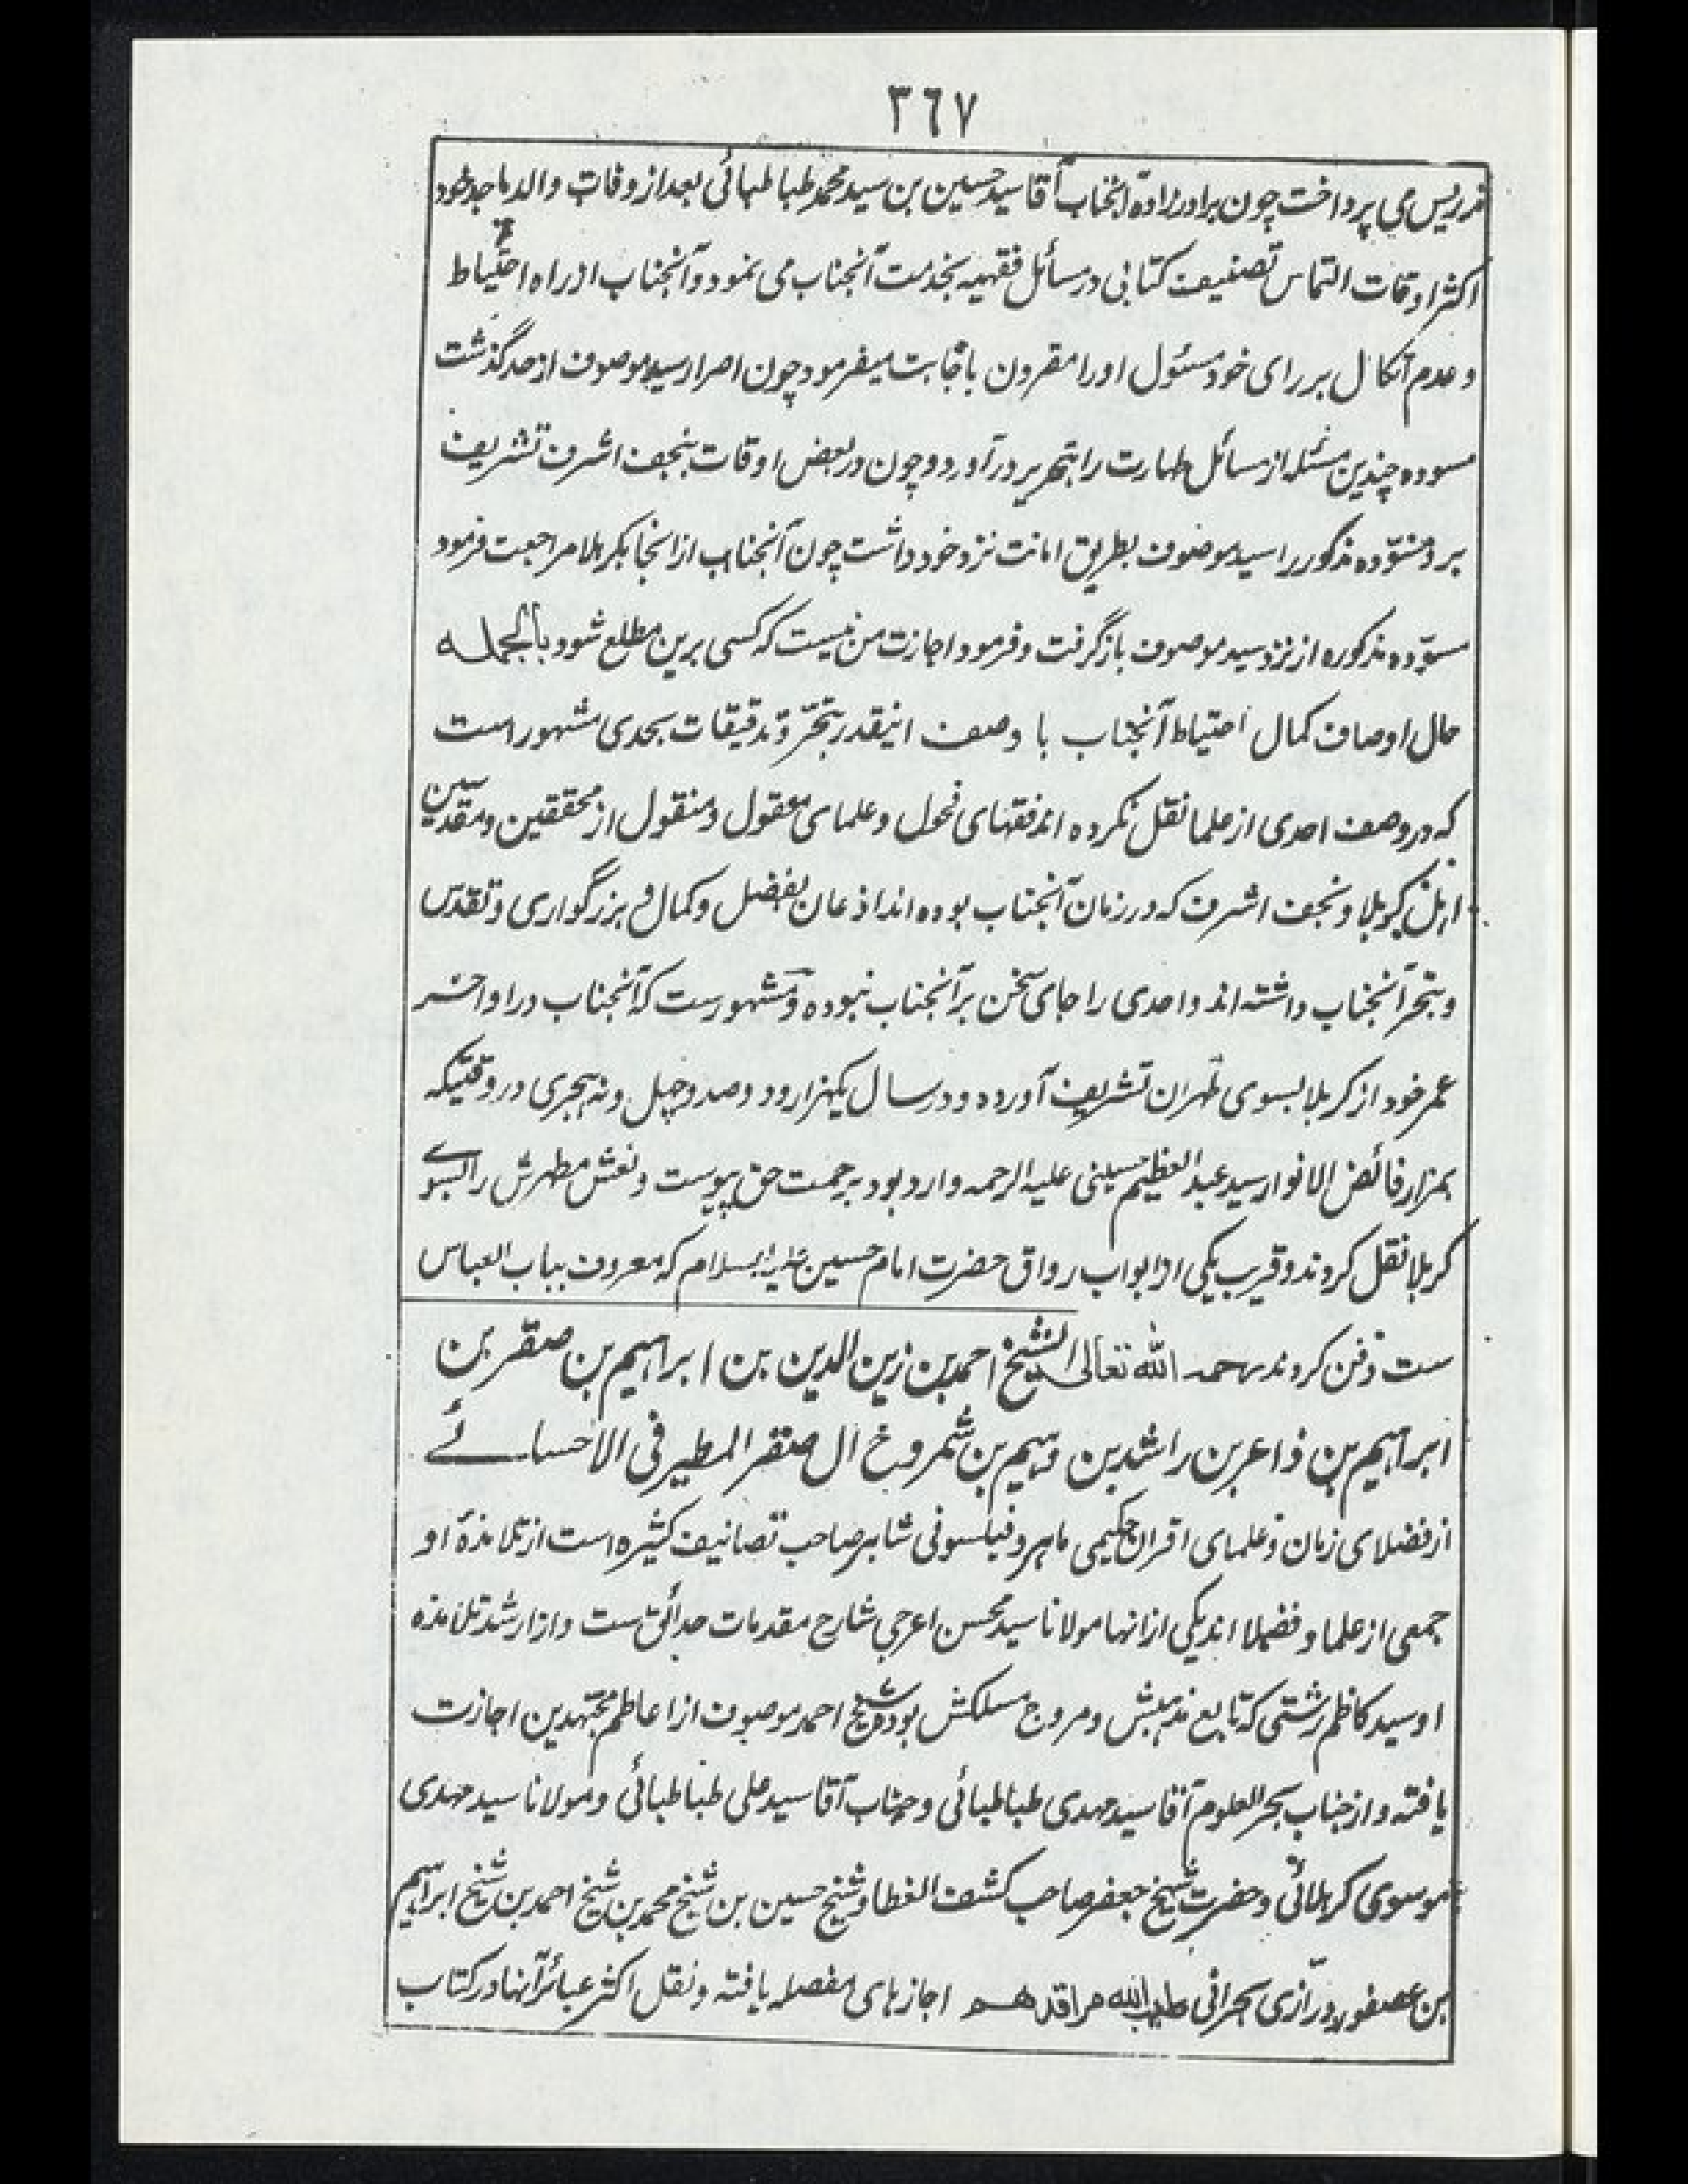 ٣٦٧
تدریس می پرداخت چون برادرزادهٔ آنجناب آقا سید حسین بن سید محمد طباطبائی بعد از وفات والد ماجد خود
اکثر اوقات التماس تصنیف کتابی در مسائل فقهیه بخدمت آنجناب می نمود و آنجناب از راه احتیاط
و عدم اتکال بر رای خود مسئول او را مقرون باجابت میفرمود چون اصرار سید موصوف از حد گذشت
مسوده چندین مسئله از مسائل طهارت را بتحریر در آورد و چون در بعض اوقات بنجف اشرف تشریف
برد مسوّده مذکور را سید موصوف بطریق امانت نزد خود داشت چون آنجناب از انجا بکربلا مراجعت فرمود
مسوّده مذکوره از نزد سید موصوف بازگرفت و فرمود اجازت من نیست که کسی برین مطلع شود بالجمله
حال اوصاف کمال احتیاط آنجناب با وصف اینقدر تبحّر و تدقیقات بحدی مشهور است
که در وصف احدی از علما نقل نکرده اند فقهای فحول و علمای معقول و منقول از محققین و مقدسین
اهل کربلا و نجف اشرف که در زمان آنجناب بوده اند اذعان بفضل و کمال و بزرگواری و تقدّس
و تبحر آنجناب داشته اند و احدی را جای سخن بر آنجناب نبوده و مشهورست که آنجناب در اواخر
عمر خود از کربلا بسوی طهران تشریف آورده و در سال یکهزار و دو صد و چهل و نه هجری در وقتیکه
بمزار فائض الانوار سید عبد العظیم حسینی علیه الرحمه وارد بود برحمت حق پیوست و نعش مطهرش را بسوے
کربلا نقل کردند و قریب یکی از ابواب رواق حضرت امام حسین علیه السلام که معروف بباب العباس
ست دفن کردند رحمه الله تعالی الشیخ احمد بن زین الدین بن ابراهیم بن صقر بن
ابراهیم بن داعر بن راشد بن دهیم بن شمروخ ال صقر المطیرفی الاحسائے
از فضلای زمان و علمای اقران حکیمی ماهر و فیلسوفی شاهر صاحب تصانیف کثیره است از تلامذهٔ او
جمعی از علما و فضلا اند یکی از انها مولانا سید محسن اعرجی شارح مقدمات حدائق ست و از ارشد تلامذه
او سید کاظم رشتی که تابع مذهبش و مروج مسلکش بود و شیخ احمد موصوف از اعاظم مجتهدین اجازت
یافته و از جناب بحر العلوم آقا سید مهدی طباطبائی و جناب آقا سید علی طباطبائی و مولانا سید مهدی
موسوی کربلائی و حضرت شیخ جعفر صاحب کشف الغطا و شیخ حسین بن شیخ محمد بن شیخ احمد بن شیخ ابراهیم
بن عصفور درّازی بحرانی طیب الله مراقدهم اجازهای مفصله یافته و نقل اکثر عبائر آنها در کتاب